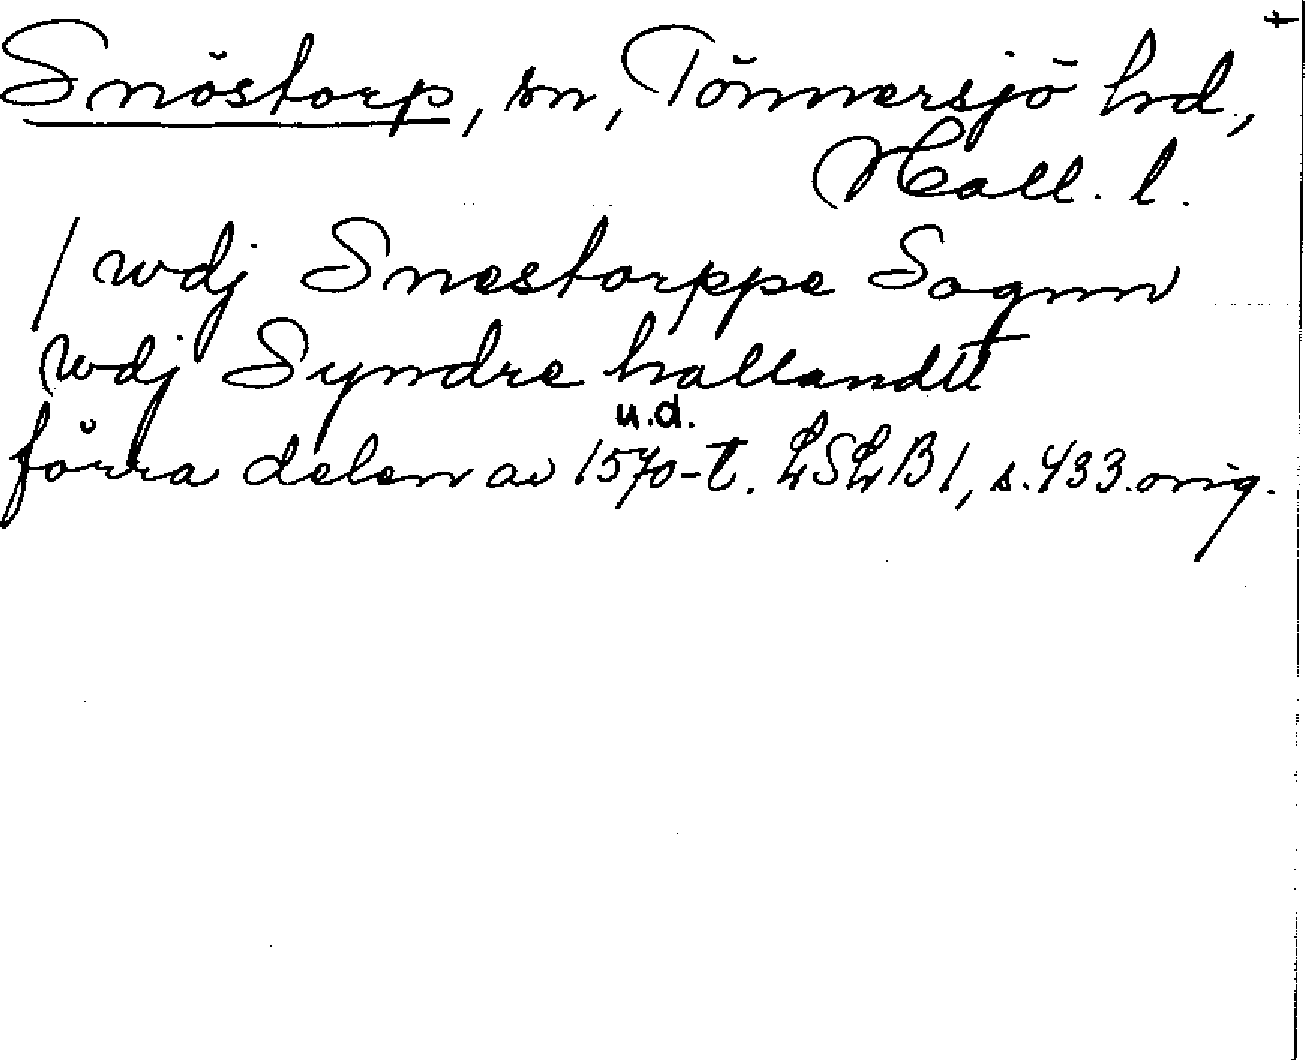 t
Snöstorp, sn, Tönnersjö hd,
Hall. l.
/ wdj Snestorppe Sognn
wdj Syndre hallandtt
u.d.
förra delen av 1570-t. LSLB1, s. 433. orig.